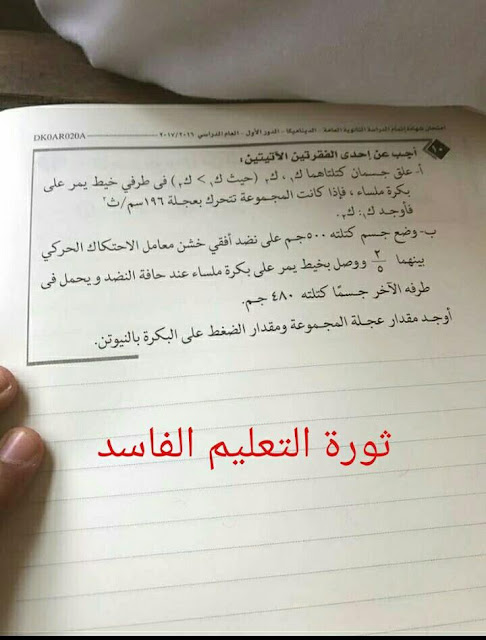 امتحان شهادة إتمام الدراسة الثانوية العامة - الديناميكا - الدور الأول - العام الدراسي ٢٠١٧/٢٠١٦
DK0AR020A
١٠
أجب عن إحدى الفقرتين الآتيتين:
أ- علق جسمان كتلتاهما ك١ ، ك٢ (حيث ك١ > ك٢) في طرفي خيط يمر على
بكرة ملساء ، فإذا كانت المجموعة تتحرك بعجلة ١٩٦سم/ث٢
فأوجد ك١ : ك٢.
ب- وضع جسم كتلته ٥٠٠جم على نضد أفقي خشن معامل الاحتكاك الحركي
بينهما ٢/٥ ووصل بخيط يمر على بكرة ملساء عند حافة النضد ويحمل في
طرفه الآخر جسمًا كتلته ٤٨٠ جم.
أوجد مقدار عجلة المجموعة ومقدار الضغط على البكرة بالنيوتن.
ثورة التعليم الفاسد